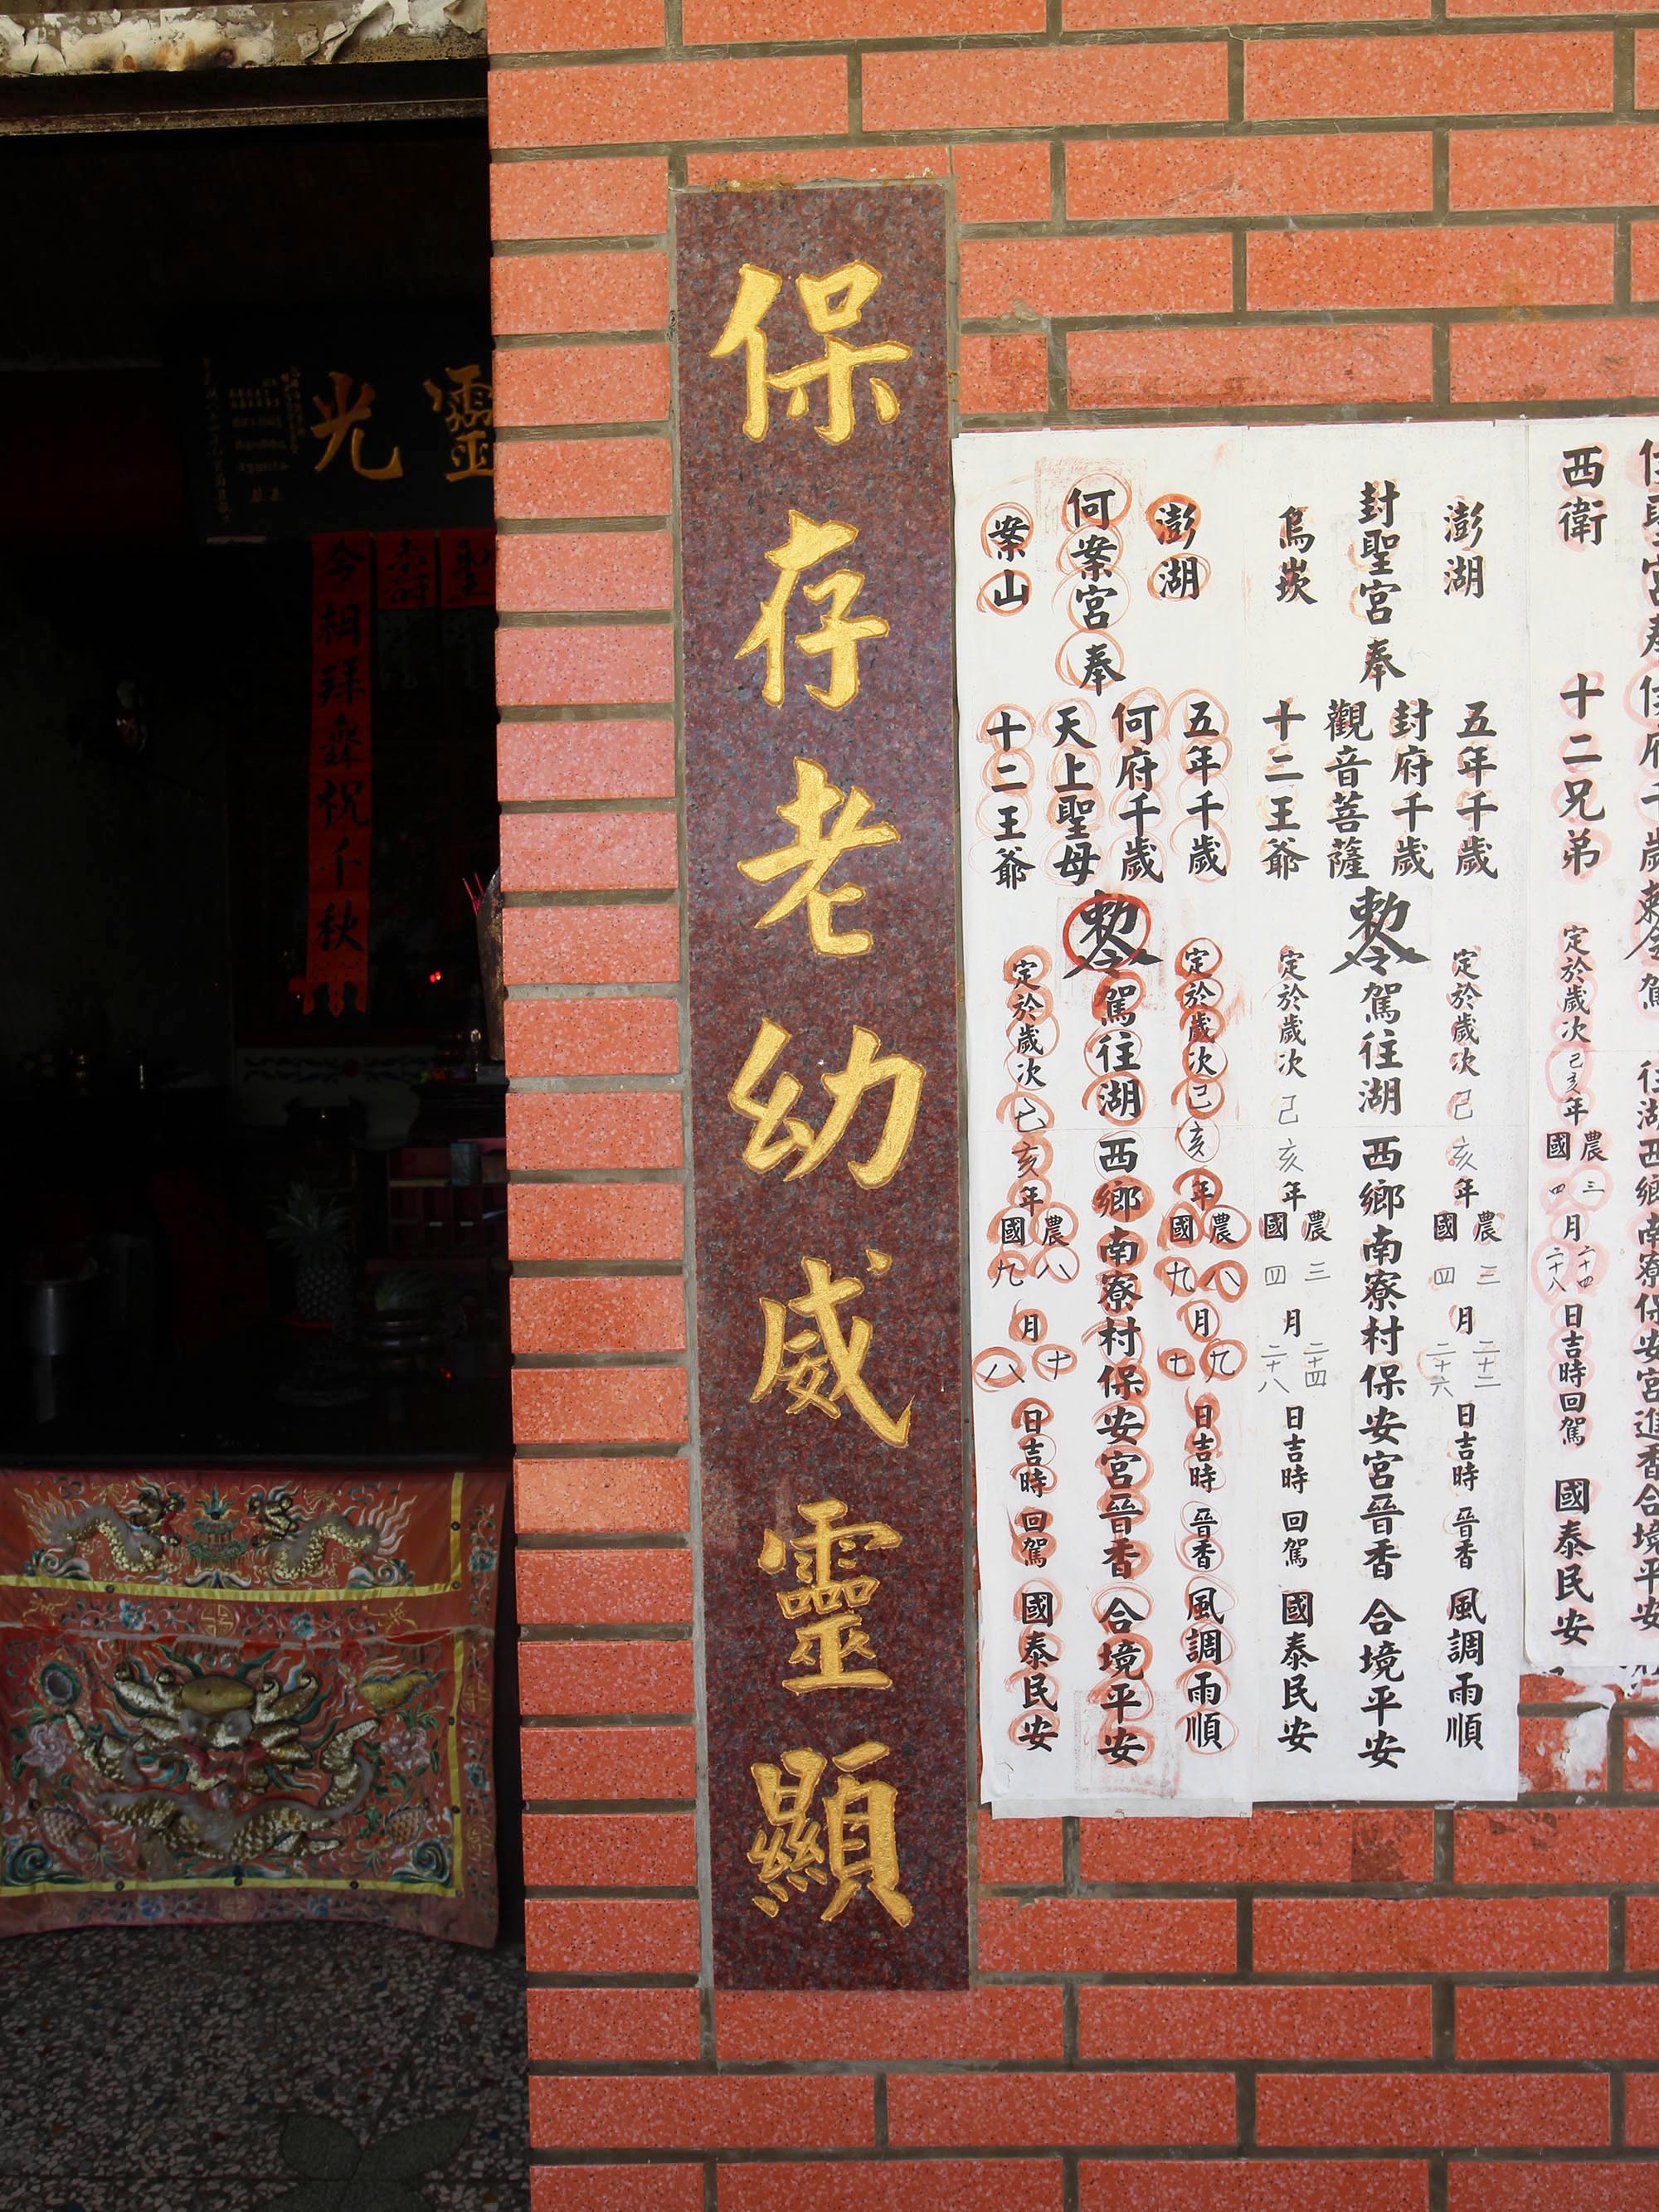 保存老幼威靈顯
靈光
聖
壽
今朝拜壽祝千秋
西衛
十二兄弟
定於歲次己亥年農三國四月二十四二十八日吉時回駕
國泰民安
澎湖
封聖宮奉
烏崁
五年千歲
封府千歲
觀音菩薩
十二王爺
定於歲次己亥年農三國四月二十二二十六日吉時晉香
風調雨順
敕令駕往湖西鄉南寮村保安宮晉香
合境平安
定於歲次己亥年農三國四月二十四二十八日吉時回駕
國泰民安
澎湖
何案宮奉
案山
五年千歲
何府千歲
天上聖母
十二王爺
定於歲次己亥年農八國九月九七日吉時晉香
風調雨順
敕令駕往湖西鄉南寮村保安宮晉香
合境平安
定於歲次己亥年農八國九月十八日吉時回駕
國泰民安